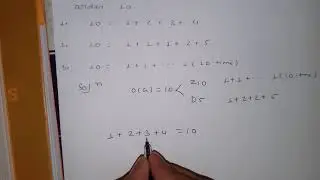 10
1. 10 = 1 + 2 + 3 + 4
10 = 1 + 1 + 1 + 2 + 5
10 = 1 + 1 + ... 1 (10 times)
Sol^n
O(G) = 10 < Z10 1 + 1 + ... 1 (10 times)
D5 1 + 2 + 2 + 5
1 + 2 + 3 + 4 = 10